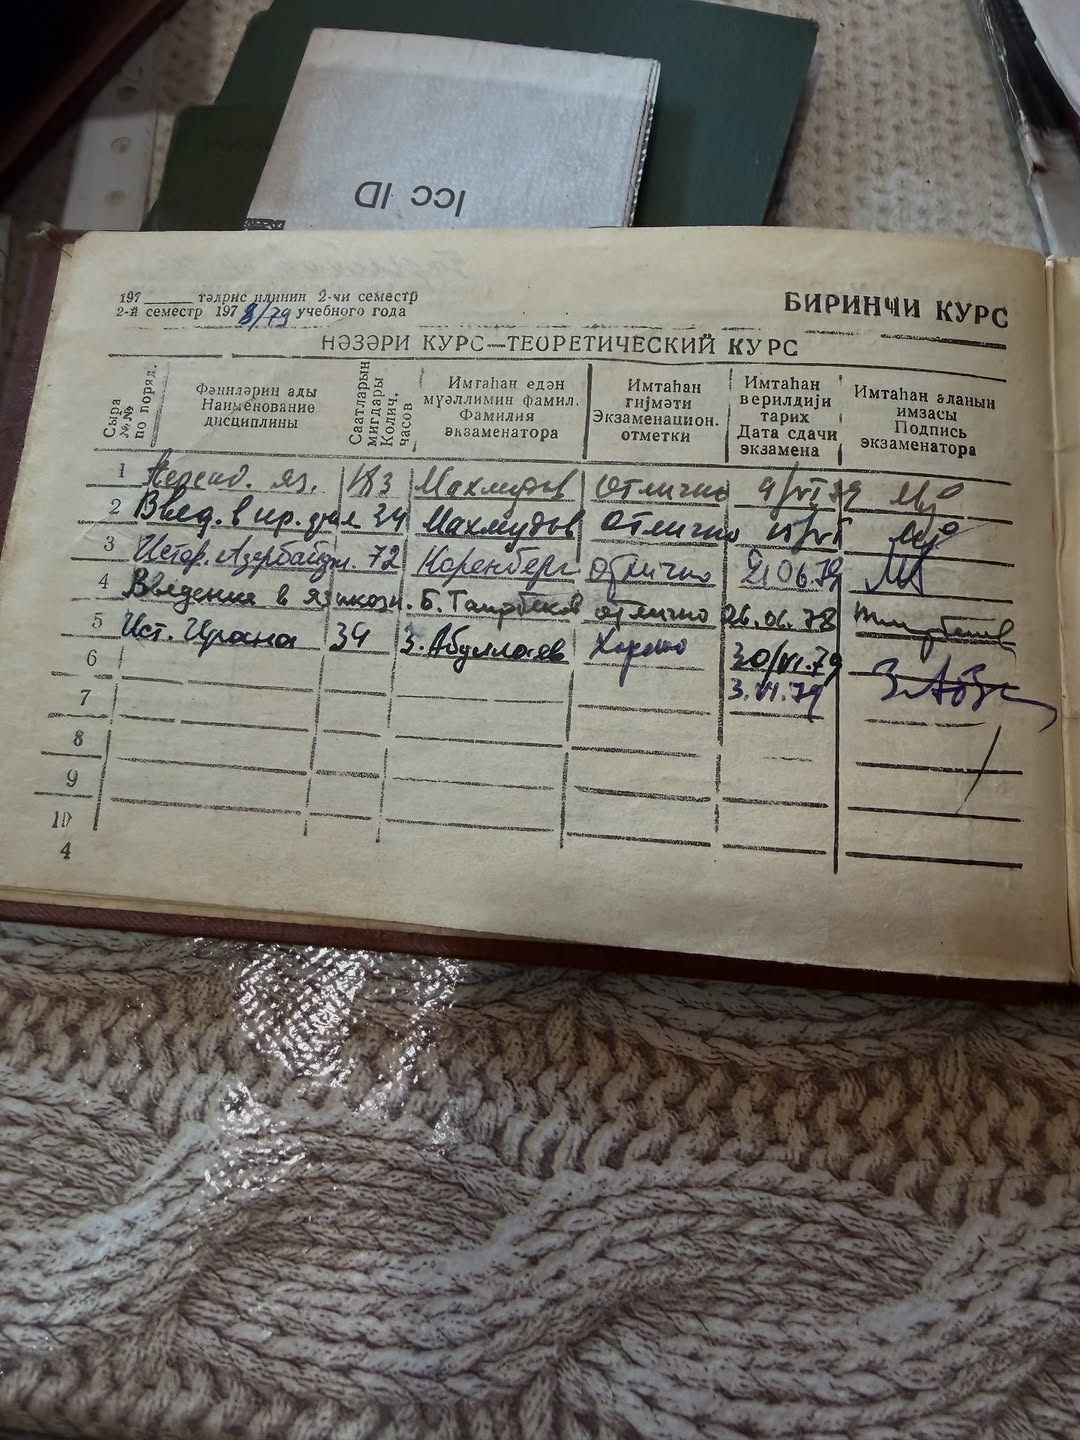 Icc ID
197 тәдрис илинин 2-чи семестр
2-й семестр 1978/79 учебного года
БИРИНЧИ КУРС
НӘЗӘРИ КУРС—ТЕОРЕТИЧЕСКИЙ КУРС
Сыра №№ по поряд.
Фәннләрин ады
Наименование
дисциплины
Саатларын
мигдары
Колич.
часов
Имтаһан едән
мүәллимин фамил.
Фамилия
экзаменатора
Имтаһан
гијмәти
Экзаменацион.
отметки
Имтаһан
верилдији
тарих
Дата сдачи
экзамена
Имтаһан аланын
имзасы
Подпись
экзаменатора
1 Персид. яз. 183 Махмудов отлично
2 Введ. в ир. фил 34 Махмудов отлично
3 Истор. Азербайдж. 72 Коренберг отлично 21.06.79
4 Введение в языкозн. Б. Таирбеков отлично 26.06.78
5 Ист. Ирана 34 З. Абуллаев Хорошо 30/VI.79
6 3.VI.79
7
8
9
10
4